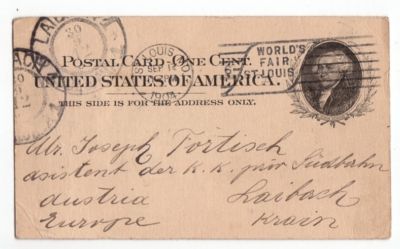 LAIBACH
POSTAL CARD - ONE CENT.
ST. LOUIS, MO.
SEP 12
1904
WORLD'S
FAIR
ST. LOUIS
1904
UNITED STATES OF AMERICA.
THIS SIDE IS FOR THE ADDRESS ONLY.
Mr. Joseph Tortisch
asistent der K. K. priv Südbahn
Austria Laibach
Europe Krain